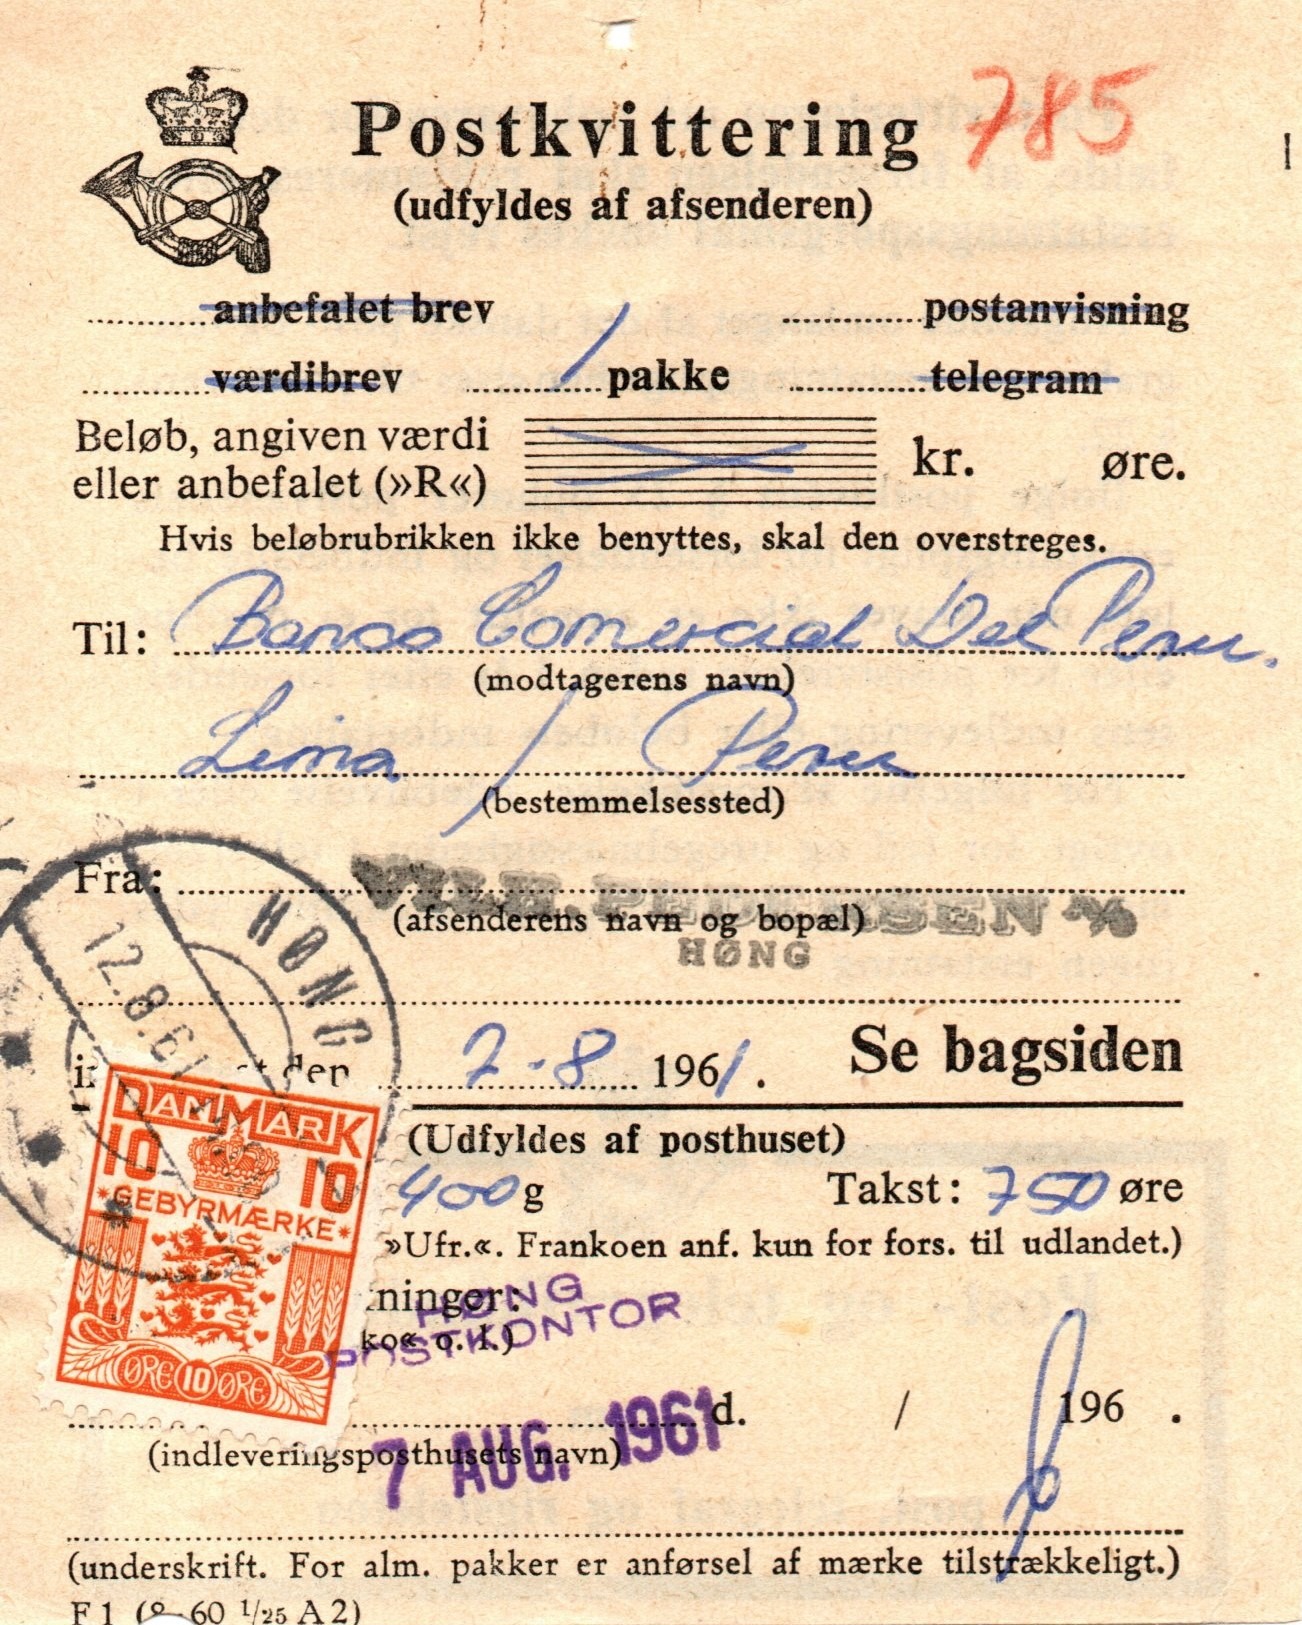 Postkvittering 785
(udfyldes af afsenderen)
anbefalet brev postanvisning
værdibrev 1 pakke telegram
Beløb, angiven værdi
eller anbefalet (»R«) kr. øre.
Hvis beløbrubrikken ikke benyttes, skal den overstreges.
Til: Banco Comercial Del Peru.
(modtagerens navn)
Lima / Peru
(bestemmelsessted)
Fra: VILH. PEDERSEN A/S
(afsenderens navn og bopæl)
HØNG
HØNG
12.8.61
den 7-8 1961. Se bagsiden
DANMARK
10 10
GEBYRMÆRKE
ØRE 10 ØRE
(Udfyldes af posthuset)
400 g Takst: 750 øre
»Ufr.«. Frankoen anf. kun for fors. til udlandet.)
ninger:
ko« o. l.)
HØNG
POSTKONTOR
d. / 196 .
(indleveringsposthusets navn)
7 AUG. 1961
(underskrift. For alm. pakker er anførsel af mærke tilstrækkeligt.)
F 1 (8-60 1/25 A 2)